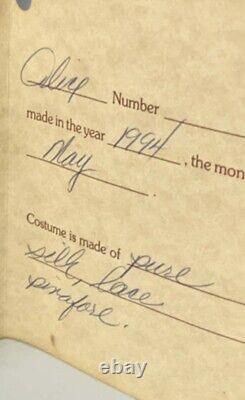 Alice Number
made in the year 1994, the mon
May.
Costume is made of pure
silk, lace
pinafore.
© ebay